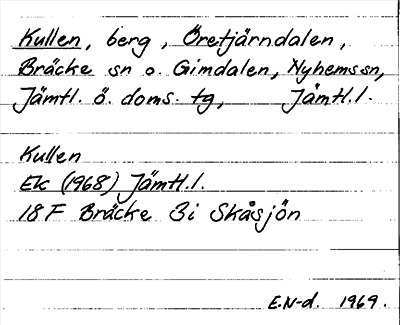 Kullen, berg, Öretjärndalen,
Bräcke sn o. Gimdalen, Nyhems sn,
Jämtl. ö. doms. tg, Jämtl. l.
Kullen
Ek (1968) Jämtl. l.
18F Bräcke 3i Skåsjön
E.N-d. 1969.